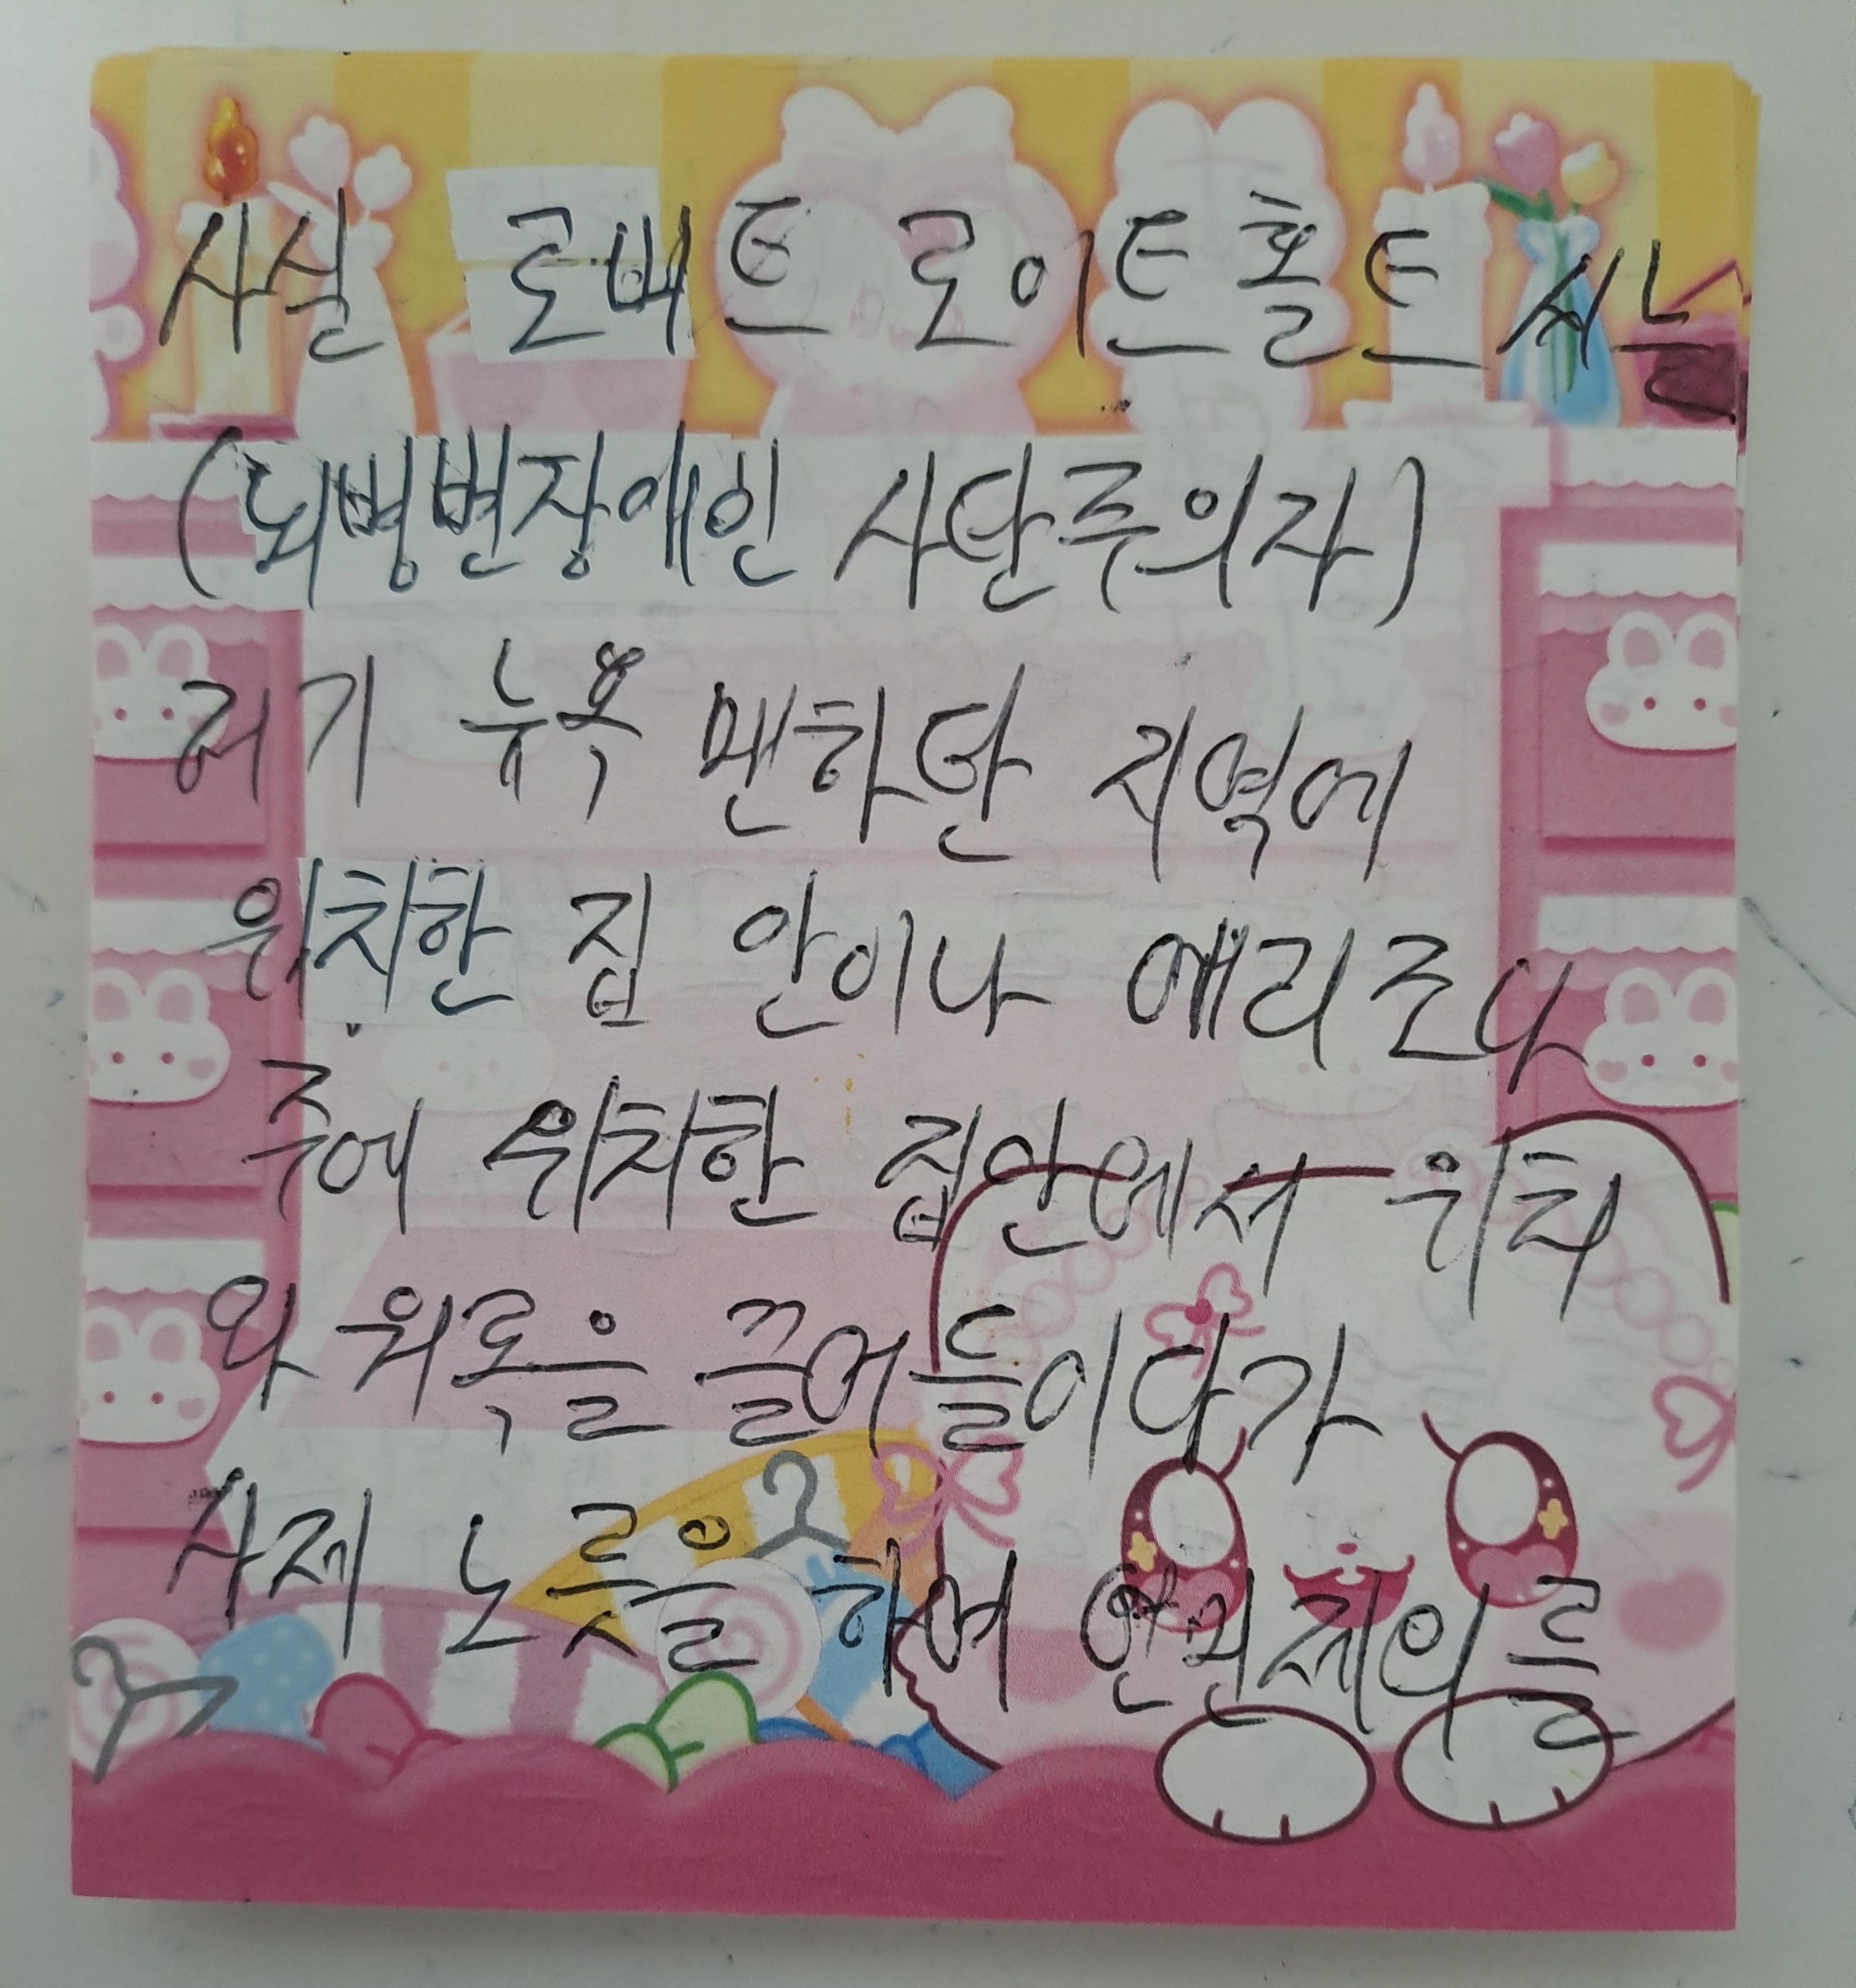 사실 로버트 로이트홀트 씨는
(뇌병변장애인 사단주의자)
거기 뉴욕 맨하탄 지역에
위치한 집 안이나 애리조나
주에 위치한 집안에서 위치
와 워록을 끌어들이다가
사제 노릇을 하여 인민재의를